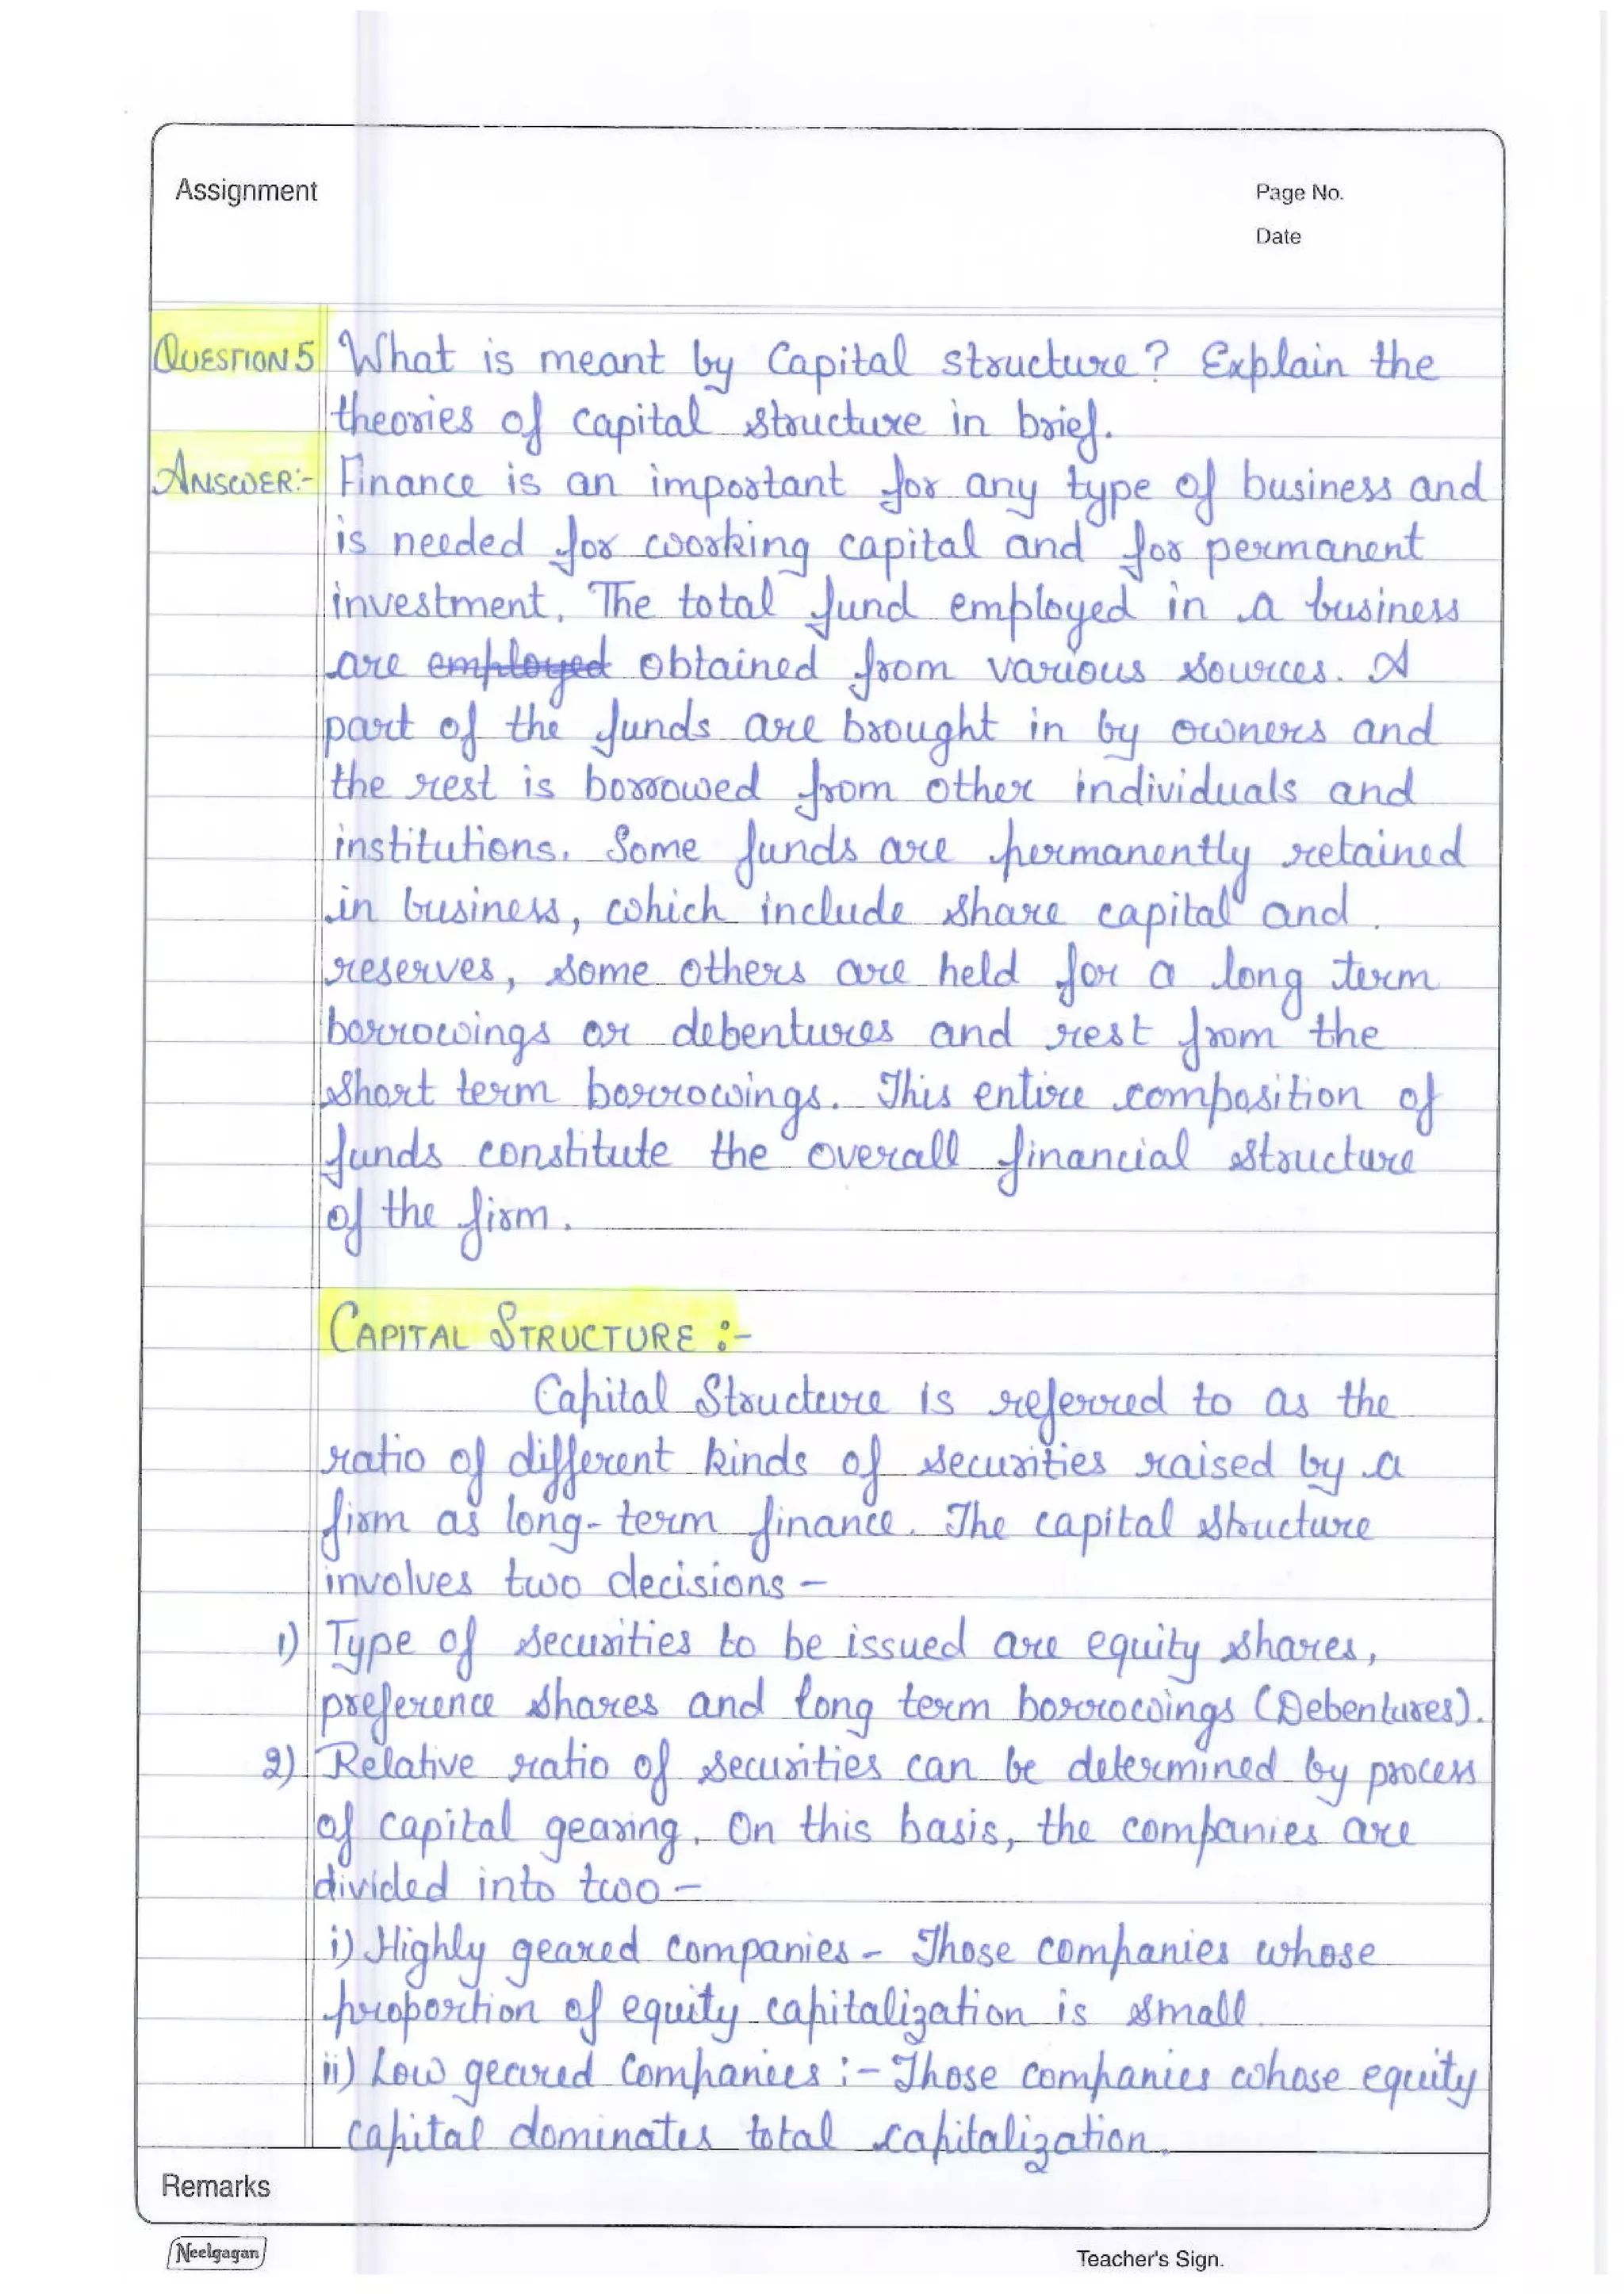 Assignment
Page No.
Date
QUESTION 5 What is meant by Capital structure? Explain the
theories of capital structure in brief.
ANSWER:- Finance is an important for any type of business and
is needed for working capital and for permanent
investment. The total fund employed in a business
are employed obtained from various sources. A
part of the funds are brought in by owners and
the rest is borrowed from other individuals and
institutions. Some funds are permanently retained
in business, which include share capital and
reserves, some others are held for a long term
borrowings or debentures and rest from the
short term borrowings. This entire composition of
funds constitute the overall financial structure
of the firm.
CAPITAL STRUCTURE :-
Capital Structure is referred to as the
ratio of different kinds of securities raised by a
firm as long-term finance. The capital structure
involves two decisions -
1) Type of securities to be issued are equity shares,
preference shares and long term borrowings (Debentures).
2) Relative ratio of securities can be determined by process
of capital gearing. On this basis, the companies are
divided into two -
i) Highly geared companies - Those companies whose
proportion of equity capitalization is small.
ii) Low geared Companies :- Those companies whose equity
capital dominates total capitalization.
Remarks
Neelgagan
Teacher's Sign.